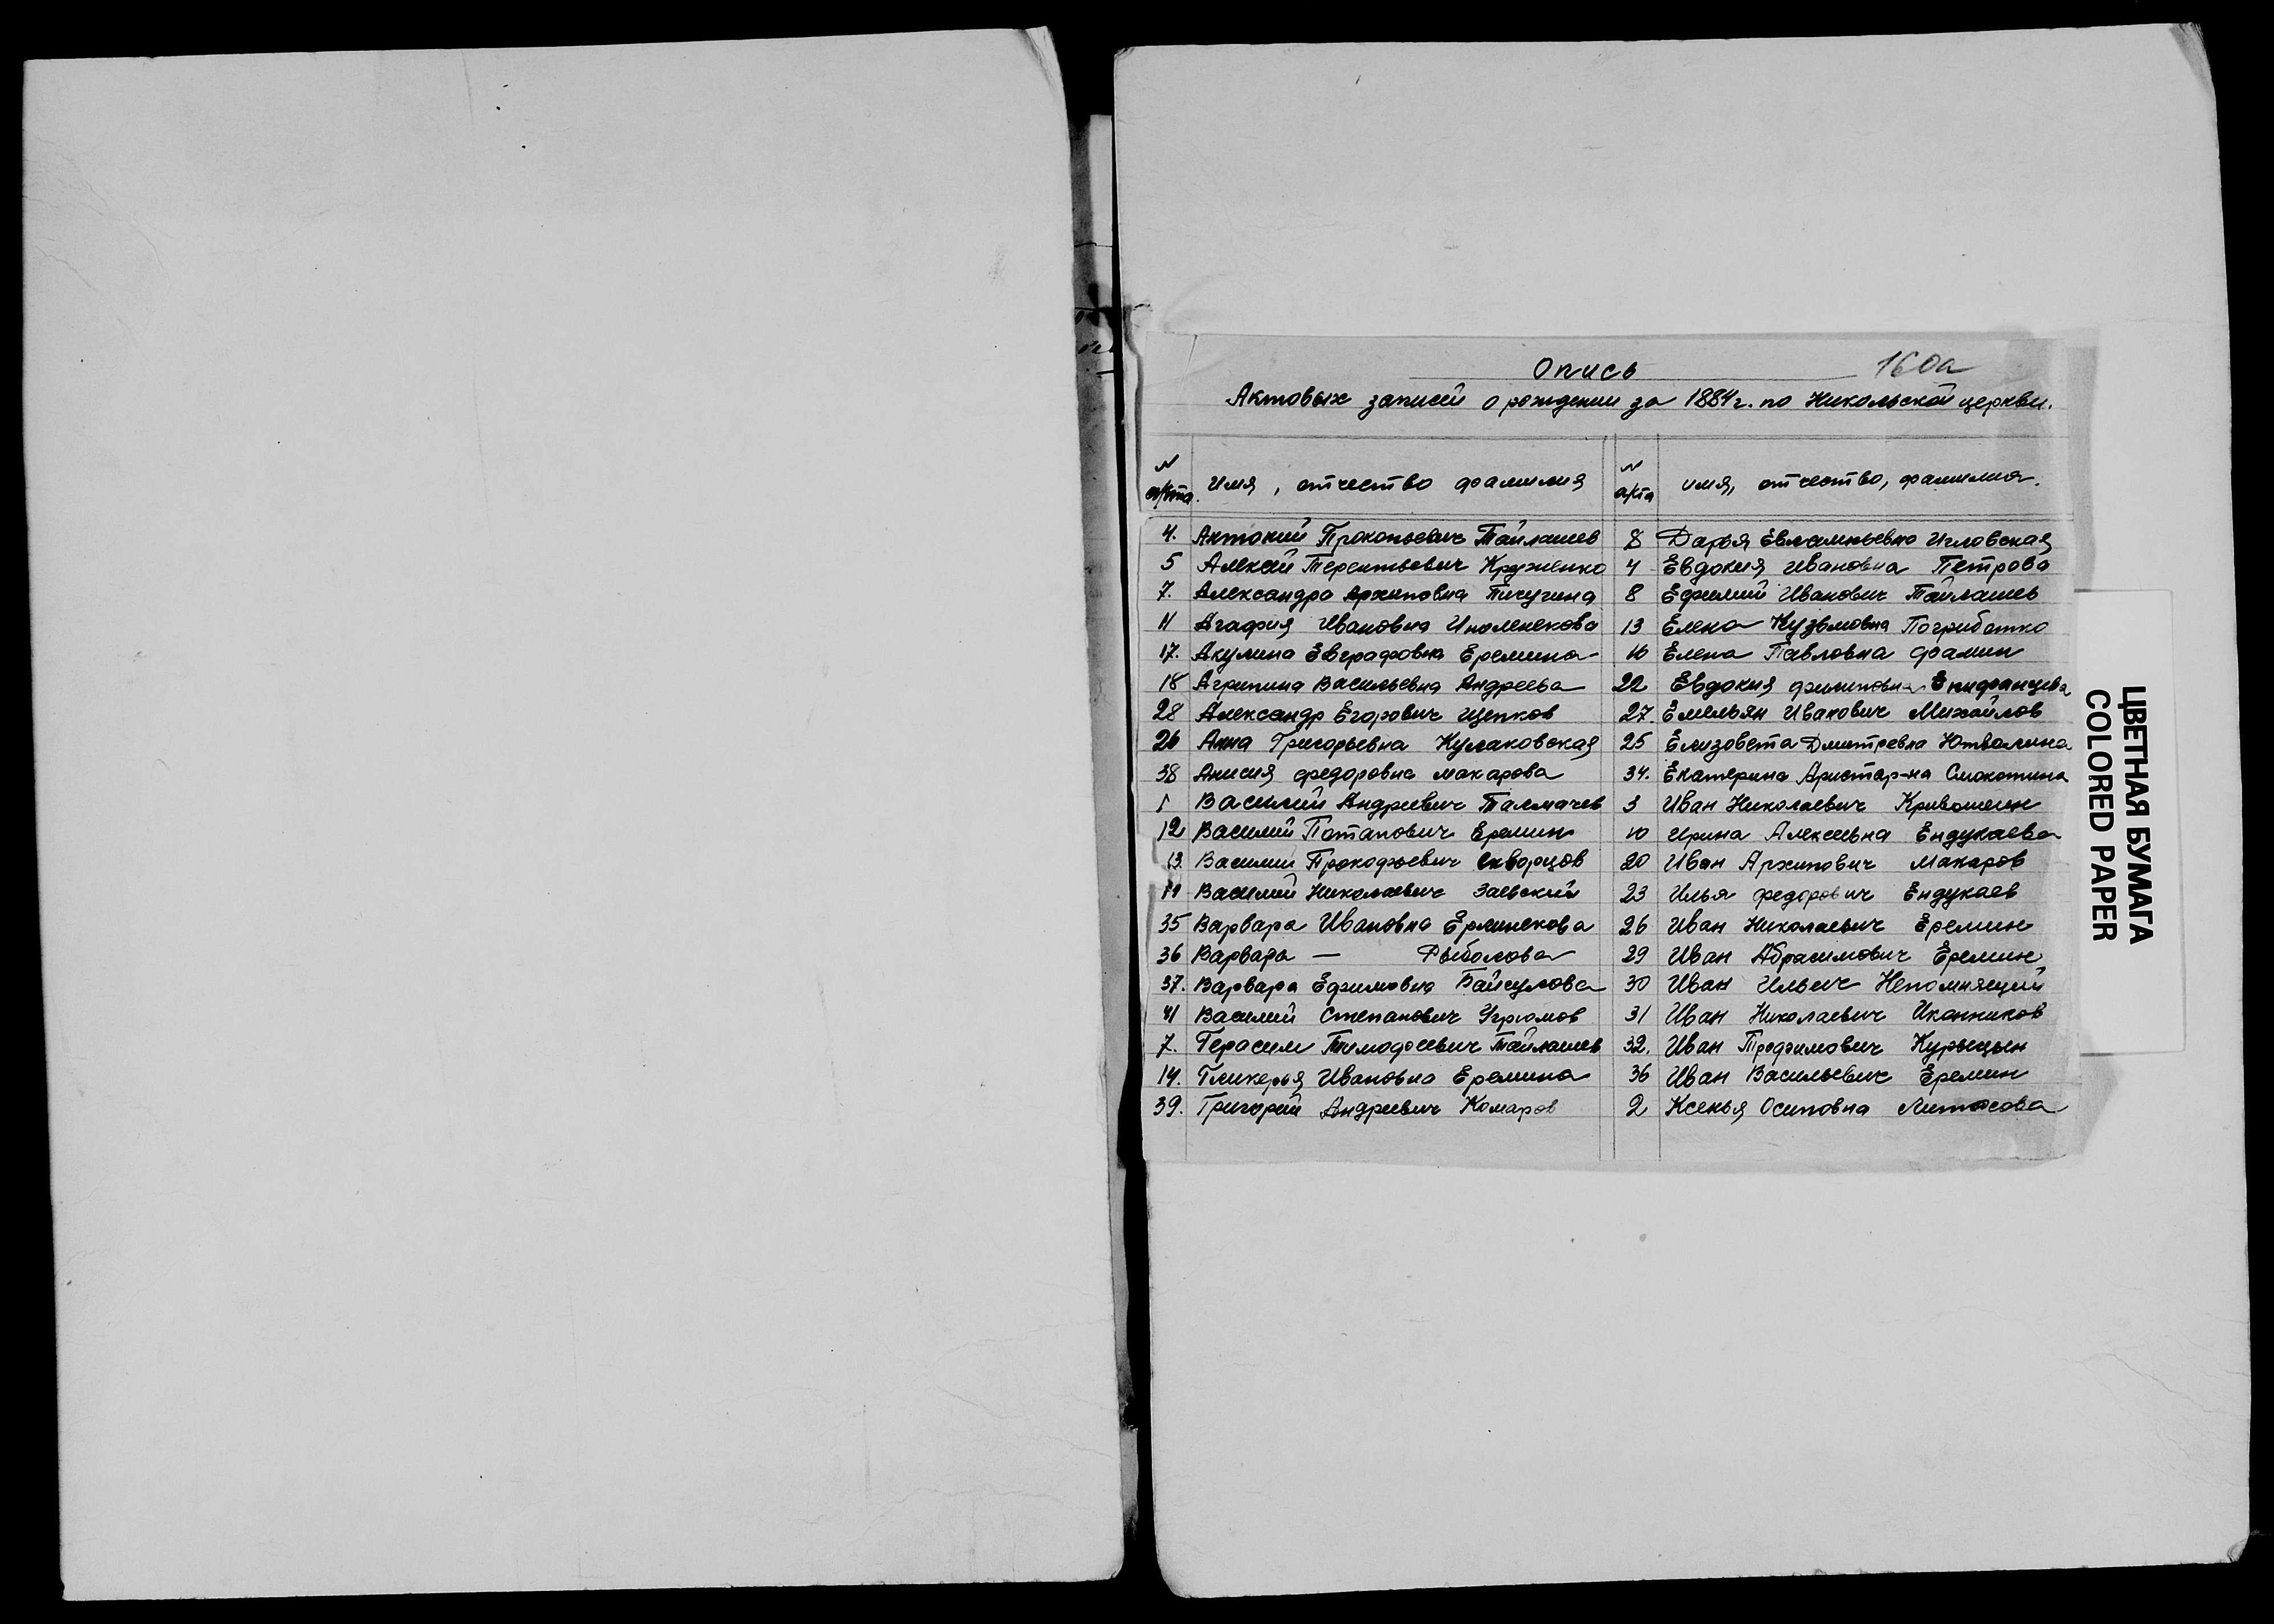 Опись 160а
Актовых записей о рождении за 1884г. по Никольской церкви.
N акта. имя, отчество фамилия N акта имя, отчество, фамилия.
4. Антоний Прокопьевич Тайлашев 8 Дарья Евлампьевна Игловская
5 Алексей Терентьевич Круженко 4 Евдокия Ивановна Петрова
7. Александра Архиповна Пичугина 8 Ефимий Иванович Тайлашев
11 Агафия Ивановна 13 Елена Кузьмовна Погрибатко
17. Акулина Евграфовна Еремина 16 Елена Павловна Фамин
18 Агрипина Васильевна Андреева 22 Евдокия Филиповна Епифанцева
28 Александр Егорович Щепков 27. Емельян Иванович Михайлов
26 Анна Григорьевна Кулаковская 25 Елизовета Дмитревна
38 Анисия Федоровна Макарова 34. Екатерина Аристар-на Смокотина
1 Василий Андреевич Талмачев 3 Иван Николаевич Кривошеин
12 Василий Потапович Еремин 10 Ирина Алексеевна Ендукаева
13. Василий Прокофьевич Скворцов 20 Иван Архипович Макаров
Василий Николаевич Заевский 23 Илья Федорович Ендукаев
35 Варвара Ивановна Ерлинекова 26 Иван Николаевич Еремин
36 Варвара — Рыболова 29 Иван Абрасимович Еремин
37. Варвара Ефимовна Байгулова 30 Иван Ильич Непомнящий
41 Василий Степанович Угрюмов 31 Иван Николаевич Иконников
7. Герасим Тимофеевич Тайлашев 32. Иван Трофимович Курыцын
14. Гликерья Ивановна Еремина 36 Иван Васильевич Еремин
39. Григорий Андреевич Комаров 2 Ксенья Осиповна Литосова
ЦВЕТНАЯ БУМАГА
COLORED PAPER